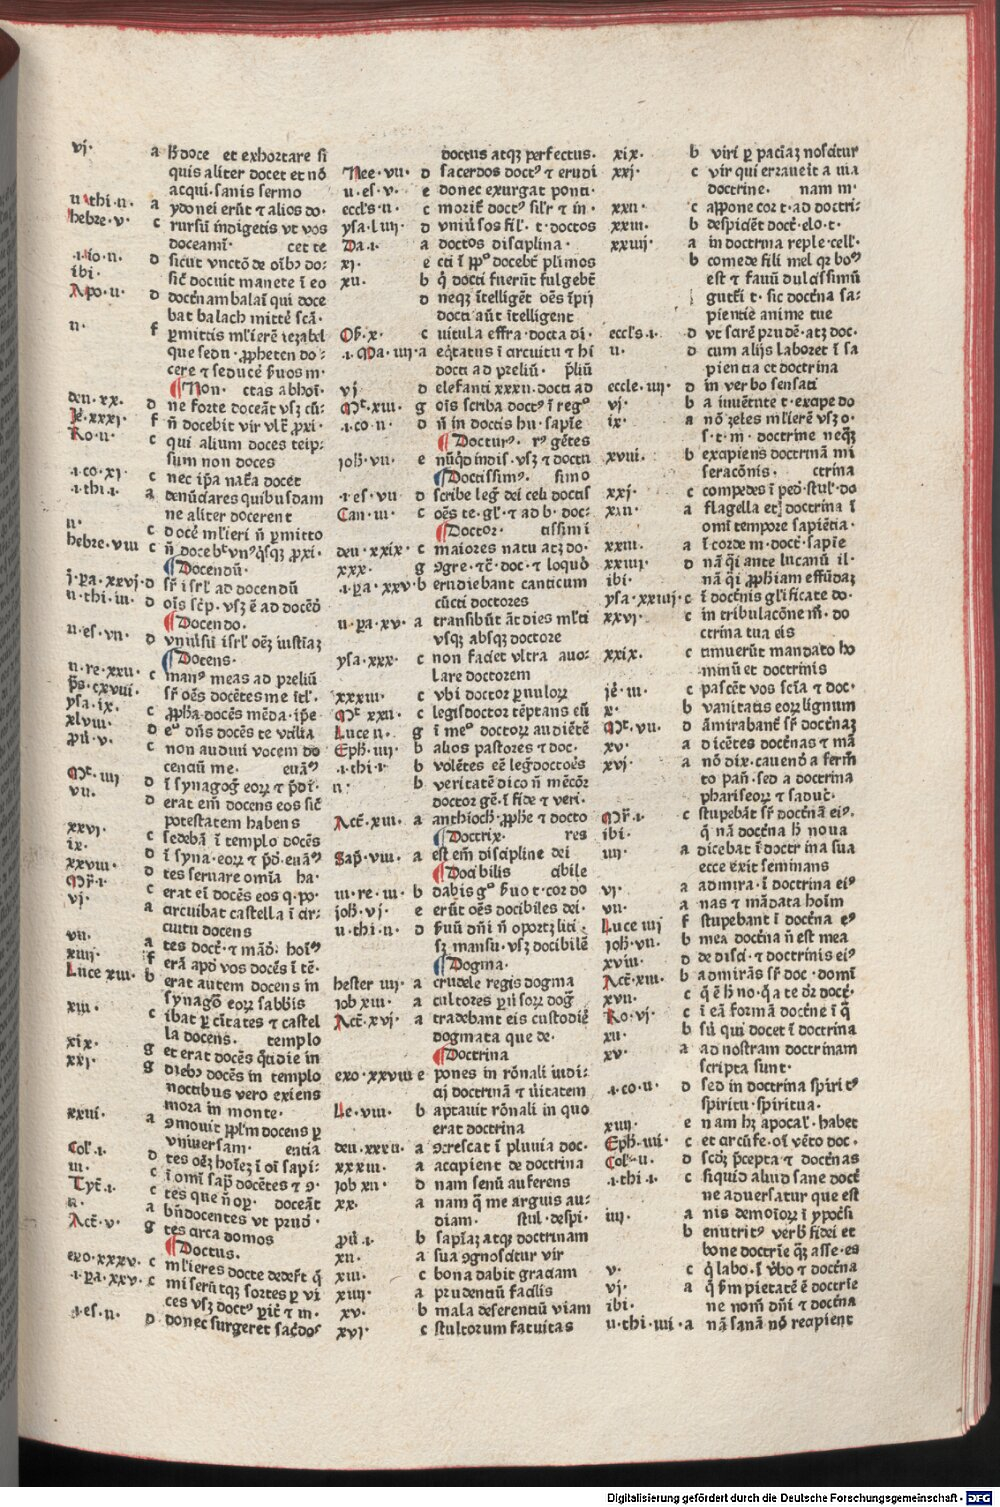 vj· a h̄ doce et exhortare si
quis aliter docet et nō
acqui· sanis sermo
ij thi·ij· a ydonei erūt ⁊ alios do·
hebre·v· c rursū indigetis vt vos
doceamī· cet te
·i·io·ij· d sicut vnctō de oīb⁹ do·
ibi· sic̄ docuit manete ī eo
Apo·ij· d doct̄nam balaā qui doce
bat balach mitte᷑ scā·
ij· f p̄mittis ml̓ierē iezabel
que se dn̄· ꝓpheten do·
cere ⁊ seduce᷑ s̄uos m·
¶Non· ctas abhoī·
deu·xx· d ne forte doceāt vsꝫ cū·
Je᷑·xxxj· f n̄ docebit vir vlt̄ ꝓxi·
Ro·ij· c qui alium doces teip·
sum non doces
·i·co·xj· c nec ip̄a nat̄a docet
·i·thi·i· a denūciares quibusdam
ne aliter docerent
ij· c docē ml̓ieri n̄ p̄mitto
hebre·viij c n̄ doceb̄t vn⁹qͥsqꝫ ꝓxi·
¶Docendū·
j·pa·xxvj·d sr̄ isrl̓ ad docendū
ij·thi·iij· d oīs sc̄p· vsꝫ ē ad docēd
¶Docendo·
ij·es·vij· d vniūsū isrl̓ oēꝫ iusticiaꝫ
¶Docens·
ij·re·xxij· c man⁹ meas ad preliū
ps·cxvij· sr̄ oēs docētes me ītl̓·
ysa·ix· c ꝓph̄a docēs mēda· ip̄e
xlviij· d e⁹ dn̄s docēs te vtilia
ꝓū·v· c non audiui vocem do
centiū me· euā⁹
Mt̓·iiij d ī synagog᷑ eoꝝ ⁊ p̄di·
vij· d erat em̄ docens eos sic̄
potestatem habens
xxvj· c sedebā ī templo docēs
ix· d ī syna·eoꝝ ⁊ p̄d᷑·euā⁹
xxviij· d tes seruare omīa ha·
Mr̓·i· c erat ei docēs eos q·po·
vj· a circuibat castella ī cir·
cuitu docens
vij· a tes doct̄·⁊ mād᷑· hoī⁹
xiiij· f erā apd̓ vos docēs ī tē·
Luce xiij· b erat autem docens in
synagog᷑ eoꝝ sabbīs
xiij· c ibat p̱ cītates ⁊ castel
la docens· templo
xix· g et erat docēs qͦtidie in
xxj· g dieb⁹ docēs in templo
noctibus vero exiens
mora in monte·
xxiij· a ꝯmouit ppl̓m docens p̱
vniuersam· entia
Col̓·i· d tes oēꝫ hoīeꝫ ī oī sapi·
iij· c ī omī sap̄ docētes ⁊ ꝯ·
Tyt̄·i· c tes que n̄ op᷑· doceāt
ij· a bn̄docentes vt prud᷑·
Act̓·v· g tes arca domos
¶Doctus·
exo·xxxv· c ml̓ieres docte dedert̄ q̄
·i·pa·xxv· c mi serūtqꝫ sortes p̱ vi
ces vsꝫ doct⁹ p̱it᷑ ⁊ in·
·i·es·ij· d donec surgeret sac̓dos
doctus atqꝫ perfectus·
Nee·vij· d sacerdos doct⁹ ⁊ erudi
ij·es·v· e donec exurgat ponti·
eccl̓s·ij· c morit̄ doct⁹ sil̓r ⁊ in·
ysa·liiij· d vniūsos fil̓·t·doctos
Da·i· a doctos disciplina·
xj· e cti ī pp̄o docebt̄ pl̓imos
xij· b q̓ docti fuerūt fulgebt̄
d neqꝫ ītelligēt oēs īpij
docti aūt ītelligent
Os̄·x· c vitula effra·docta di·
·i·Ma·iiij·a eq̓tatus ī circuitu ⁊ hi
docti ad preliū· p̄liū
vj d elefanti xxxij·docti ad
Mt̓·xiij· g oīs scriba doct⁹ ī reg⁹
·i·co·ij· d n̄ in doctis hu·sapīe
¶Doctur⁹· r⁹ gētes
joh̄·vij· e nūq̓d in dis·vsꝫ ⁊ doctu
¶Doctissim⁹· simo
·i·es·vij d scribe leg᷑ dei celi doctis
Can·iij· c oēs te·gl᷑·⁊ ad b·doc·
¶Doctor· tissimi
deu·xxix· c maiores natu atꝫ do·
xxx· g ꝯgre·⁊c̄·doc·⁊ loquō
·i·pa·xxv·b erudiebant canticum
cūcti doctores
ij·pa·xv· a transibūt āt dies ml̓ti
vsqꝫ absqꝫ doctore
ysa·xxx· c non faciet vltra auo·
lare doctorem
xxxiij· c vbi doctor p̱uuloꝝ
Mt̓ xxij· c legisdoctor tēptans eū
Luce ij· g ī me⁹ doctoꝝ audiētē
Eph̄·iiij· b alios pastores ⁊ doc·
·i·thi·i· b volētes eē leg᷑doctores
ij· b veritatē dico n̄ mēcōr
doctor gē·ī fide ⁊ veri·
Act̓·xiij· a anthioch̄·ꝓph̄e ⁊ docto
¶Doctrix· res
Sap̄·viij· a est em̄ discipline dei
¶Docibilis cibile
iij·re·iij· b dabis g⁹ s̄uo t·cor do
joh̄·vj· e erūt oēs docibiles dei·
ij·thi·ij· d s̄uū dn̄i n̄ oportꝫ liti·
sꝫ mansu·vsꝫ docibilē
¶Dogma·
hester iiij· a crudele regis dogma
job xiij· a cultores p̱ūsoꝝ dog᷑
Act̓·xvj· a tradebant eis custodiē
dogmata que de·
¶Doctrina
exo·xxviij e pones in rōnali iudi·
cij doctrinā ⁊ ūitatem
Le·viij· b aptauit rōnali in quo
erat doctrina
deu·xxxij· a ꝯcrescat ī pluuia doc·
xxxiij· a accipient de doctrina
job xij· d nam senū auferens
xx· a nam q̄ me arguis au·
diam· stul·despi·
ꝓū·i· b sapīaꝫ atqꝫ doctrinam
xij· a sua ꝯgnoscitur vir
xiij· c bona dabit graciam
xiiij· a prudentiū facilis
xv· b mala deserentiū viam
xvj· c stultorum fatuitas
xix· b viri p̱ paciaꝫ noscitur
xxj· c vir qui errauerit a uia
doctrine· nam m·
xxij· c appone cor t·ad doctri·
xxiij· b despiciēt doct̄·elo·t·
xxiiij· a in doctrina reple·cell̓·
b comede fili mel qꝛ bo⁹
est ⁊ fauū dulcissimū
gutt̓i t·sic doct̄na sa·
pientie anime tue
eccl̓s·i· d vt scirē prudē·atꝫ doc·
ij· d cum alijs laboret ī sa
pientia et doctrina
eccle·iiij· d in verbo sensati
vj· b a iuuētute t·excipe do
ix· a nō zeles ml̓ierē vsꝫ o·
s·t·m·doctrine neqꝫ
xviij· b excipiens doctrinā mi
seracōnis· ctrina
xxj· c compedes ī ped᷑·stul̓·do
xxij· a flagella et doctrina ī
omī tempore sapiētia·
xxiij· a ī corde m·doct̄·sapīe
xxiiij· d nā q̓i ante lucanū il·
ibi· nā q̓i ꝓph̄iam effūdaꝫ
ysa·xxiiij·c ī doct̄nis gl̓ificate do·
xxvj· c in tribulacōne m̄·do
ctrina tua eis
xxix· c timuerūt mandato ho
minū et doctrinis
je᷑·iij· c pascēt vos scīa ⁊ doc·
x· b vanitatis eoꝝ lignum
Mt̓·vij· d āmirabant̄ sr̄ doct̄naꝫ
xv· a dicētes doct̄nas ⁊ mā
xvj· a nō dix·cauend᷑ a ferm̄
to pan̄·sed a doctrina
phariseoꝝ ⁊ saduc̄·
Mr̓·i· c stupebāt sr̄ doct̄nā ei⁹·
ibi· q̄ nā doct̄na h̄ noua
iiij· a dicebat ī doctrina sua
ecce exit seminans
vj· a admira·ī doctrina ei⁹
vij· a nas ⁊ mādata hoīm
Luce iiij f stupebant ī doct̄na e⁹
joh̄·vij· b mea doct̄na n̄ est mea
xviij· d de disci·⁊ doctrinis ei⁹
Act̓·xiij· b admirās sr̄ doc·domī
xvij· c q̄ ē h̄ no·q̄ a te dr̄ doct̄·
Ro·vj· c ī eā formā doct̄ne ī q̄
xij· b sū qui docet ī doctrina
xv· a ad nostram doctrinam
scripta sunt·
·i·co·ij· d sed in doctrina spirit⁹
spiritu·spiritua·
xiiij· e nam hꝫ apocal̓·habet
Eph̄·iiij· c et circūfe·oī vēto doc·
Col̓·ij· d scd̓ꝫ p̄cepta ⁊ doct̄nas
·i·thi·i· c si quid aliud sane doct̄
ne aduersatur que est
iiij· a nis demoīoꝝ ī ypoc̓si
b enutrit⁹ verb᷑ fidei et
bone doctrīe q̄ꝫ asse·es
v· c q̓ labo·ī v̄bo ⁊ doct̄na
vj· a q̄ s̄m pietatē ē doctrīe
ibi· ne nom̄ dn̄i ⁊ doct̄na
ij·thi·iiij·a nā sanā nō recipient
Digitalisierung gefördert durch die Deutsche Forschungsgemeinschaft - DFG